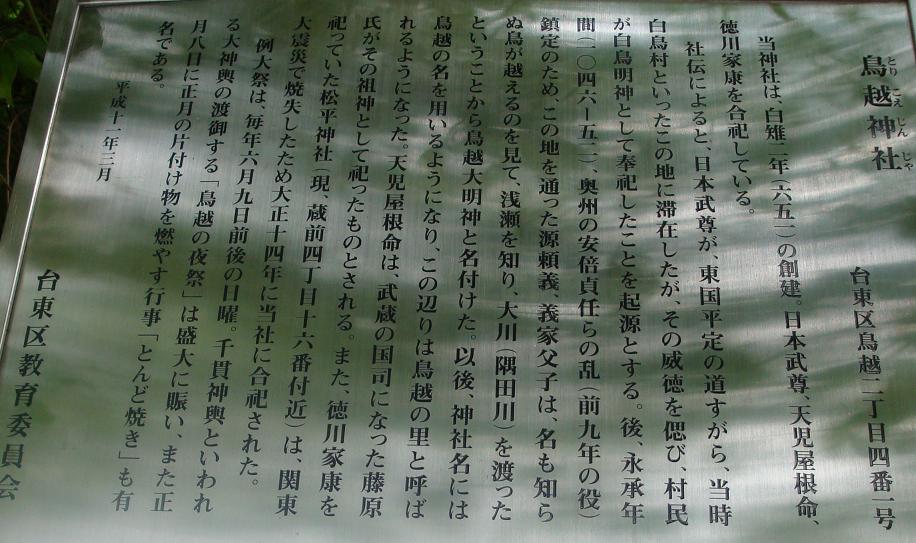 鳥越神社
とりこえじんじゃ
台東区鳥越二丁目四番一号
当神社は、白雉二年(六五一)の創建。日本武尊、天児屋根命、
徳川家康を合祀している。
社伝によると、日本武尊が、東国平定の道すがら、当時
白鳥村といったこの地に滞在したが、その威徳を偲び、村民
が白鳥明神として奉祀したことを起源とする。後、永承年
間(一〇四六―五二)、奥州の安倍貞任らの乱(前九年の役)
鎮定のため、この地を通った源頼義、義家父子は、名も知ら
ぬ鳥が越えるのを見て、浅瀬を知り、大川(隅田川)を渡った
ということから鳥越大明神と名付けた。以後、神社名には
鳥越の名を用いるようになり、この辺りは鳥越の里と呼ば
れるようになった。天児屋根命は、武蔵の国司になった藤原
氏がその祖神として祀ったものとされる。また、徳川家康を
祀っていた松平神社(現、蔵前四丁目十六番付近)は、関東
大震災で焼失したため大正十四年に当社に合祀された。
例大祭は、毎年六月九日前後の日曜。千貫神輿といわれ
る大神輿の渡御する「鳥越の夜祭」は盛大に賑い、また正
月八日に正月の片付け物を燃やす行事「とんど焼き」も有
名である。
平成十一年三月
台東区教育委員会